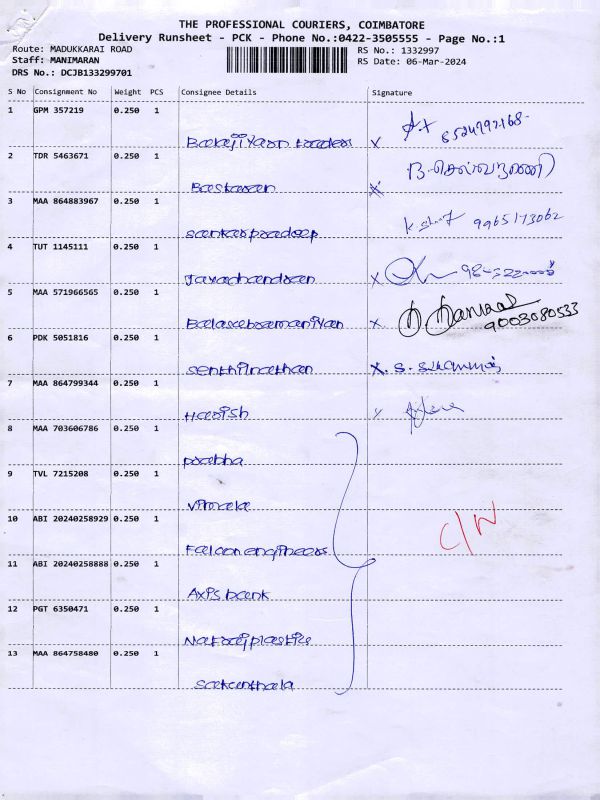 THE PROFESSIONAL COURIERS, COIMBATORE
Delivery Runsheet - PCK - Phone No.:0422-3505555 - Page No.:1
Route: MADUKKARAI ROAD RS No.: 1332997
Staff: MANIMARAN RS Date: 06-Mar-2024
DRS No.: DCJB133299701
S No Consignment No Weight PCS Consignee Details Signature
1 GPM 357219 0.250 1
Balaji Yarn traders x
2 TDR 5463671 0.250 1
Baskaran x
3 MAA 864883967 0.250 1
sankarpradeep 9965173062
4 TUT 1145111 0.250 1
Jayachandran x
5 MAA 571966565 0.250 1
Balasubramaniyan x 9003080533
6 PDK 5051816 0.250 1
senthilnathan x. S.
7 MAA 864799344 0.250 1
Harish x
8 MAA 703606786 0.250 1
prabha
9 TVL 7215208 0.250 1
vimala
10 ABI 20240258929 0.250 1
Falcon engineers C/N
11 ABI 20240258888 0.250 1
Axis bank
12 PGT 6350471 0.250 1
Natrajplastic
13 MAA 864758480 0.250 1
Sakunthala